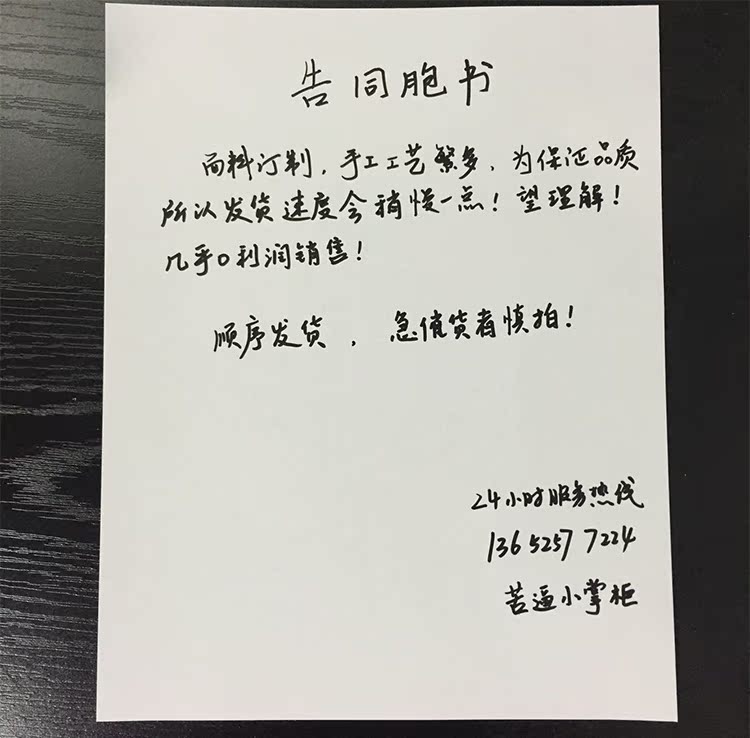 告同胞书
面料订制，手工工艺繁多，为保证品质
所以发货速度会稍慢一点！望理解！
几乎0利润销售！
顺序发货，急催货者慎拍！
24小时服务热线
136 5257 7224
苦逼小掌柜